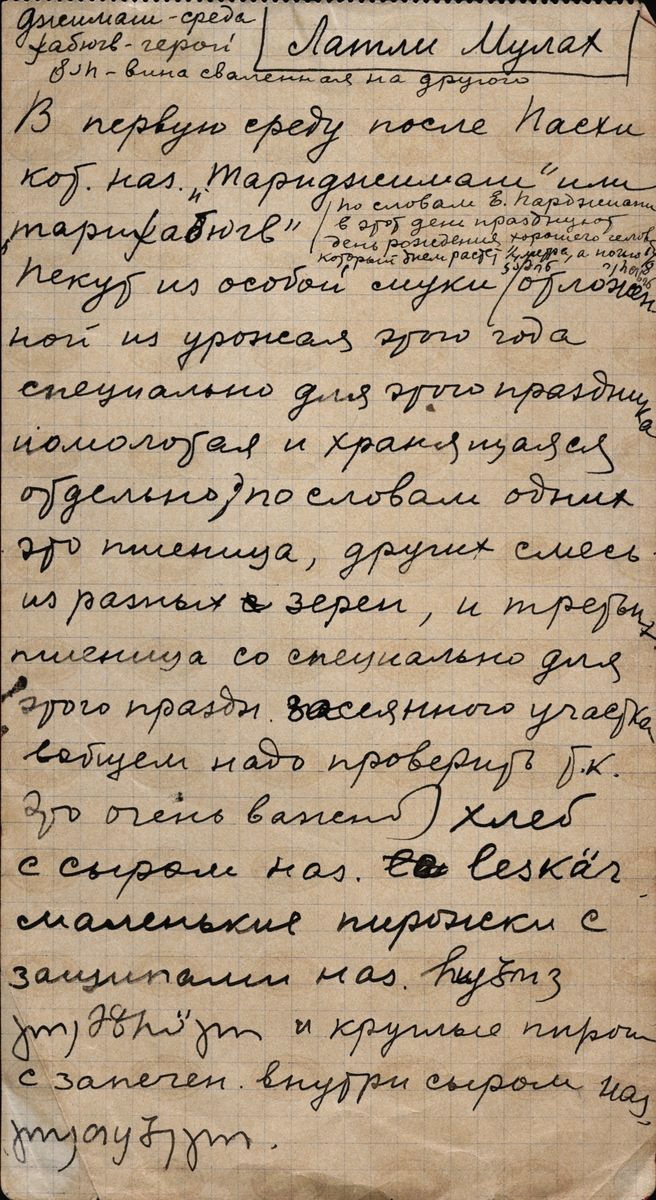 джимаш - среда
хабюгв - герой
Латли Мулах
вина сваленная на другого
В первую среду после Пасхи
кот. наз. "Тариджимаш" или
"тарихабюгв"
/по словам Е. Парджиани
в этот день празднуют
день рождения хорошего
который днем растет а
Пекут из особой муки /отложен
ной из урожая этого года
специально для этого праздника
помолотая и хранящаяся
отдельно, по словам одних
это пшеница, других смесь
из разных зерен, и третьих
пшеница со специально для
этого праздн. засеянного участка
вобщем надо проверить т.к.
это очень важно) хлеб
с сыром наз. leskär
маленькие пирожки с
защипами наз.
и круглые пироги
с запечен. внутри сыром наз.